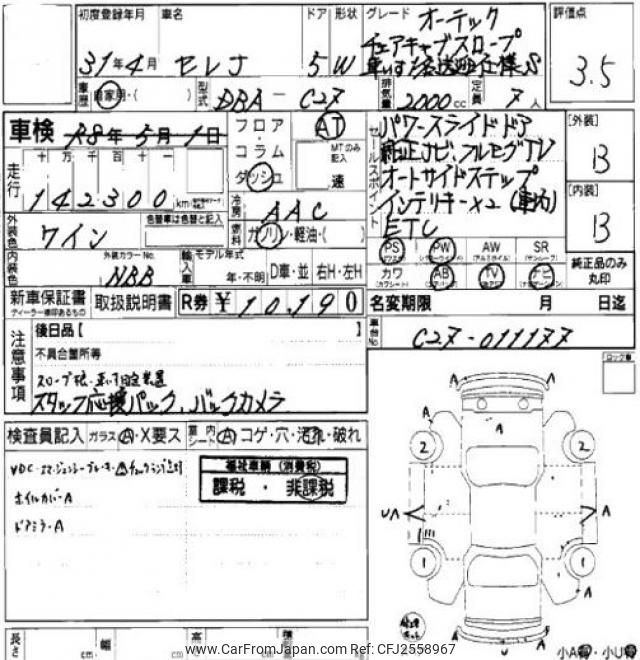 初度登録年月 車名 ドア 形状 グレード 評価点
31年4月 セレナ 5 W オーテック
チェアキャブスロープ
車いす1名送迎仕様 S
3.5
車歴 自家用・( ) 型式 DBA - C27 排気量 2000cc 定員 7人
車検 R8年5月1日 フロア・コラム ダッシュ AT MTのみ記入 速
走行 十万千百十一
142300 km
セールスポイント
パワースライドドア
純正ナビ、フルセグTV
オートサイドステップ
インテリキー×2 (車内)
ETC
[外装] B
[内装] B
純正品のみ丸印
外装色 ワイン 色替車は色替と記入
冷房 AAC
燃料 ガソリン・軽油・( )
内装色 外装カラーNo. NBB
輸入車 モデル年式 年・不明 D車・並 右H・左H
PS PW AW SR
カワ AB TV ナビ
新車保証書 ディーラー捺印あるもの 取扱説明書 R券 ¥10,190
名変期限 月 日迄
車台No. C27-011177
注意事項
後日品【 】
不具合箇所等
スロープ板、車いす固定装置
スタッフ応援パック、バックカメラ
ロック車
検査員記入 ガラス A・X要ス 室内シート A コゲ・穴・汚れ・破れ
ホイルカバーA
ドアミラーA
福祉車輌(消費税)
課税 ・ 非課税
A A
A A
2 2
UA A
1 1
A A
A U A
小A 小U
長さ cm 幅 cm 高さ cm 積
www.CarFromJapan.com Ref: CFJ2558967